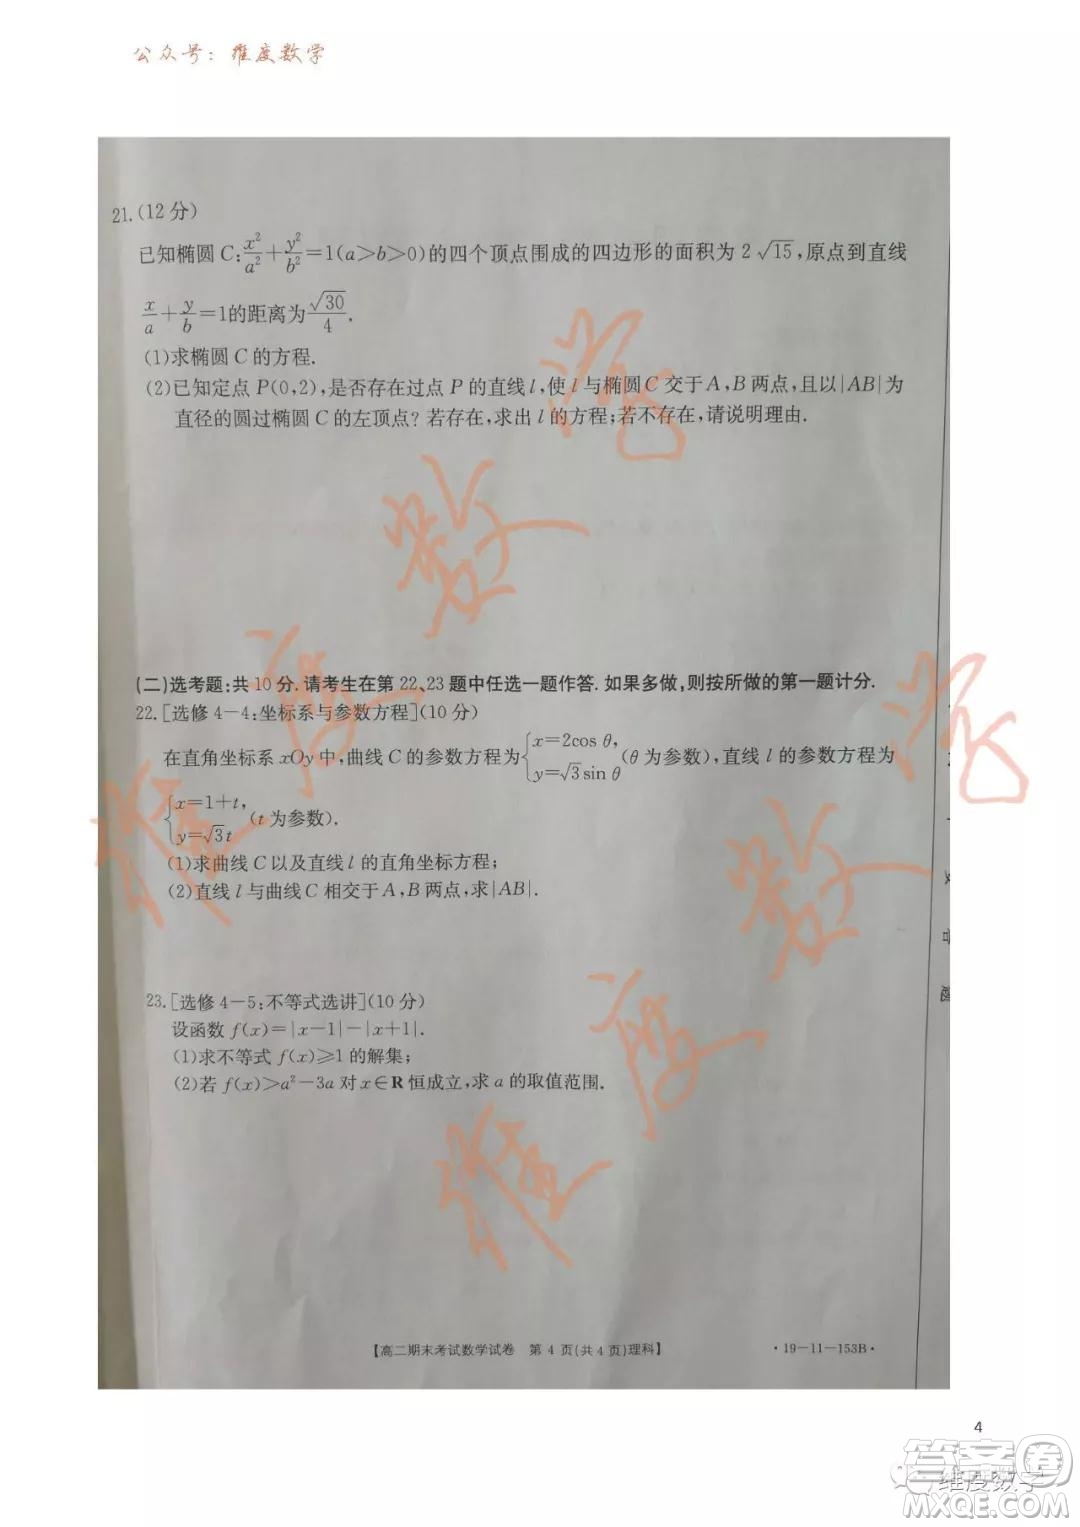 公众号：维度数学
21.(12分)
已知椭圆C:x²/a²+y²/b²=1(a>b>0)的四个顶点围成的四边形的面积为2√15,原点到直线
x/a+y/b=1的距离为√30/4.
(1)求椭圆C的方程.
(2)已知定点P(0,2),是否存在过点P的直线l,使l与椭圆C交于A,B两点,且以|AB|为
直径的圆过椭圆C的左顶点?若存在,求出l的方程;若不存在,请说明理由.
(二)选考题:共10分.请考生在第22、23题中任选一题作答.如果多做,则按所做的第一题计分.
22.[选修4-4:坐标系与参数方程](10分)
在直角坐标系xOy中,曲线C的参数方程为{x=2cos θ, y=√3sin θ(θ为参数),直线l的参数方程为
{x=1+t, y=√3t(t为参数).
(1)求曲线C以及直线l的直角坐标方程;
(2)直线l与曲线C相交于A,B两点,求|AB|.
23.[选修4-5:不等式选讲](10分)
设函数f(x)=|x-1|-|x+1|.
(1)求不等式f(x)⩾1的解集;
(2)若f(x)>a²-3a对x∈R恒成立,求a的取值范围.
答
题
【高二期末考试数学试卷 第4页(共4页)理科】
·19-11-153B·
维度数学
维度数学
维度数学
4
答案圈
维度数学
MXQE.COM